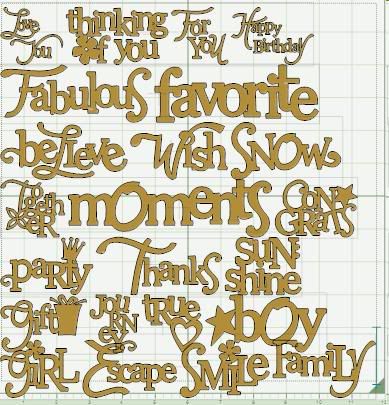 Love You thinking of you For You Happy Birthday
Fabulous favorite
believe Wish Snow
Together moments Congrats
party Thanks Sunshine
Gift Journey true boy
Girl Escape Smile Family